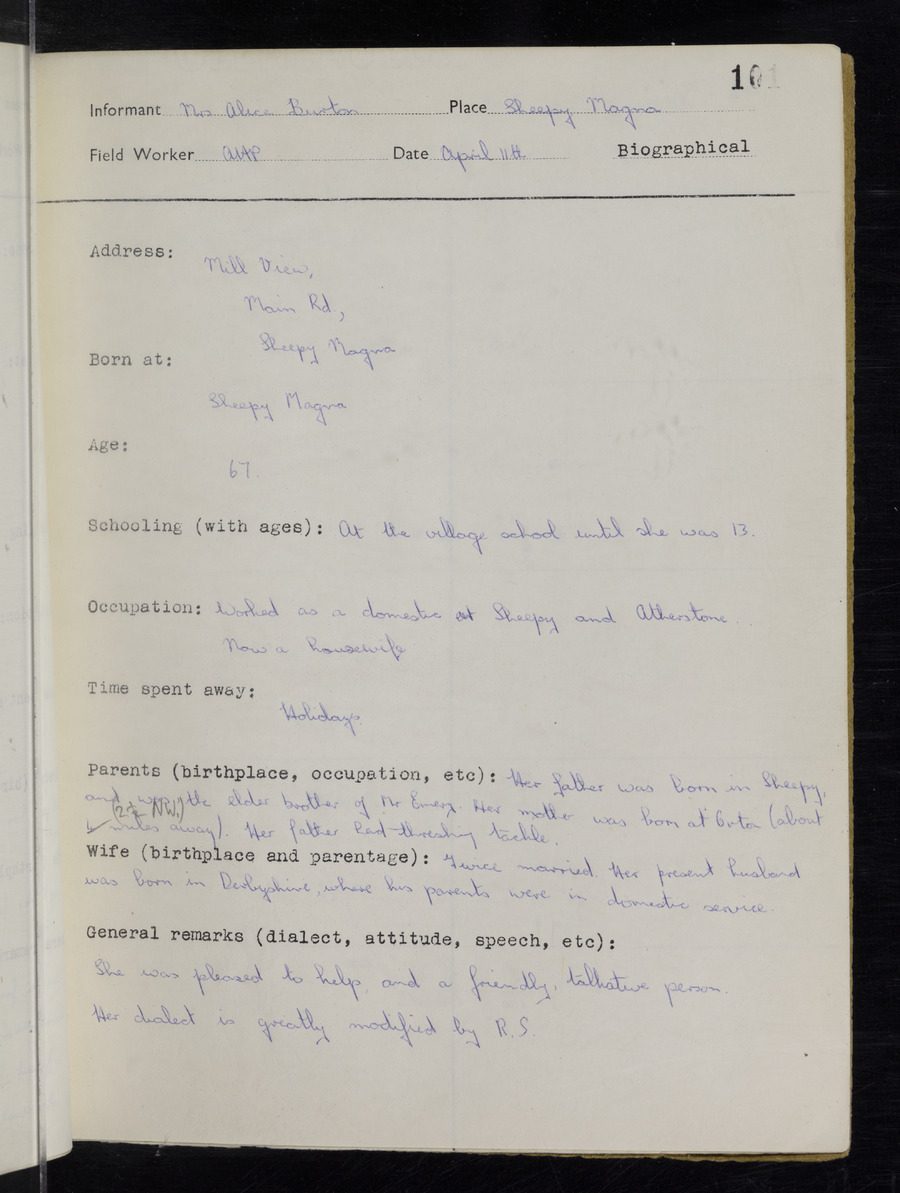 101
Informant Mrs Alice Burton Place Sheepy Magna
Field Worker Date April 11th Biographical
Address: Mill View,
Main Rd,
Sheepy Magna
Born at:
Sheepy Magna
Age:
67.
Schooling (with ages): At the village school until she was 13.
Occupation: Worked as a domestic at Sheepy and Atherstone.
Now a housewife
Time spent away:
Holidays.
Parents (birthplace, occupation, etc): Her father was born in Sheepy,
and was the elder brother of Mr Emery. Her mother was born at Orton (about
(2½ NW.)
miles away). Her father had threshing tackle.
Wife (birthplace and parentage): Twice married. Her present husband
was born in Derbyshire, where his parents were in domestic service.
General remarks (dialect, attitude, speech, etc):
She was pleased to help, and a friendly, talkative person.
Her dialect is greatly modified by R.S.